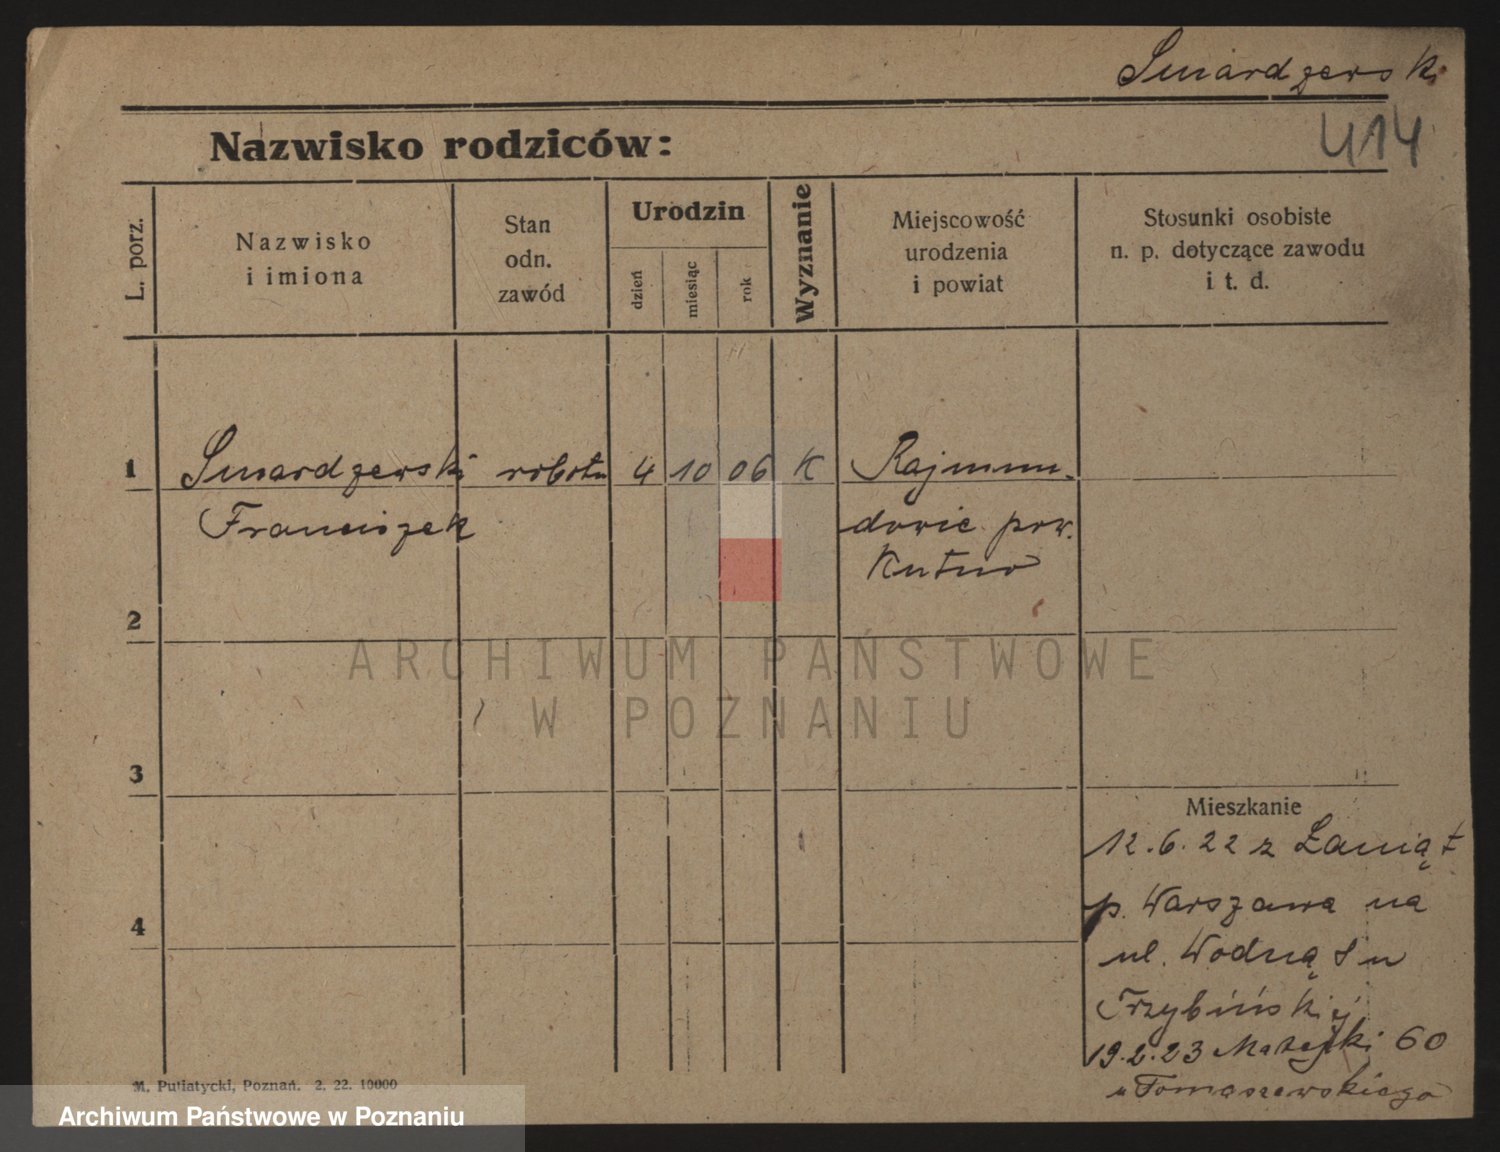 Smardzewski
414
Nazwisko rodziców:
L. porz.
Nazwisko
i imiona
Stan
odn.
zawód
Urodzin
dzień
miesiąc
rok
Wyznanie
Miejscowość
urodzenia
i powiat
Stosunki osobiste
n. p. dotyczące zawodu
i t. d.
1 Smardzewski robotn 4 10 06 K Rajmun-
Franciszek dowic pow.
Kutno
2
3
4
Mieszkanie
12.6.22 z Łaniąt
p. Warszawa na
ul. Wodną 8 u
Trzybińskiej
19.2.23 Matejki 60
u Tomaszewskiego
M. Putiatycki, Poznań. 2. 22. 10000
ARCHIWUM PAŃSTWOWE
W POZNANIU
Archiwum Państwowe w Poznaniu